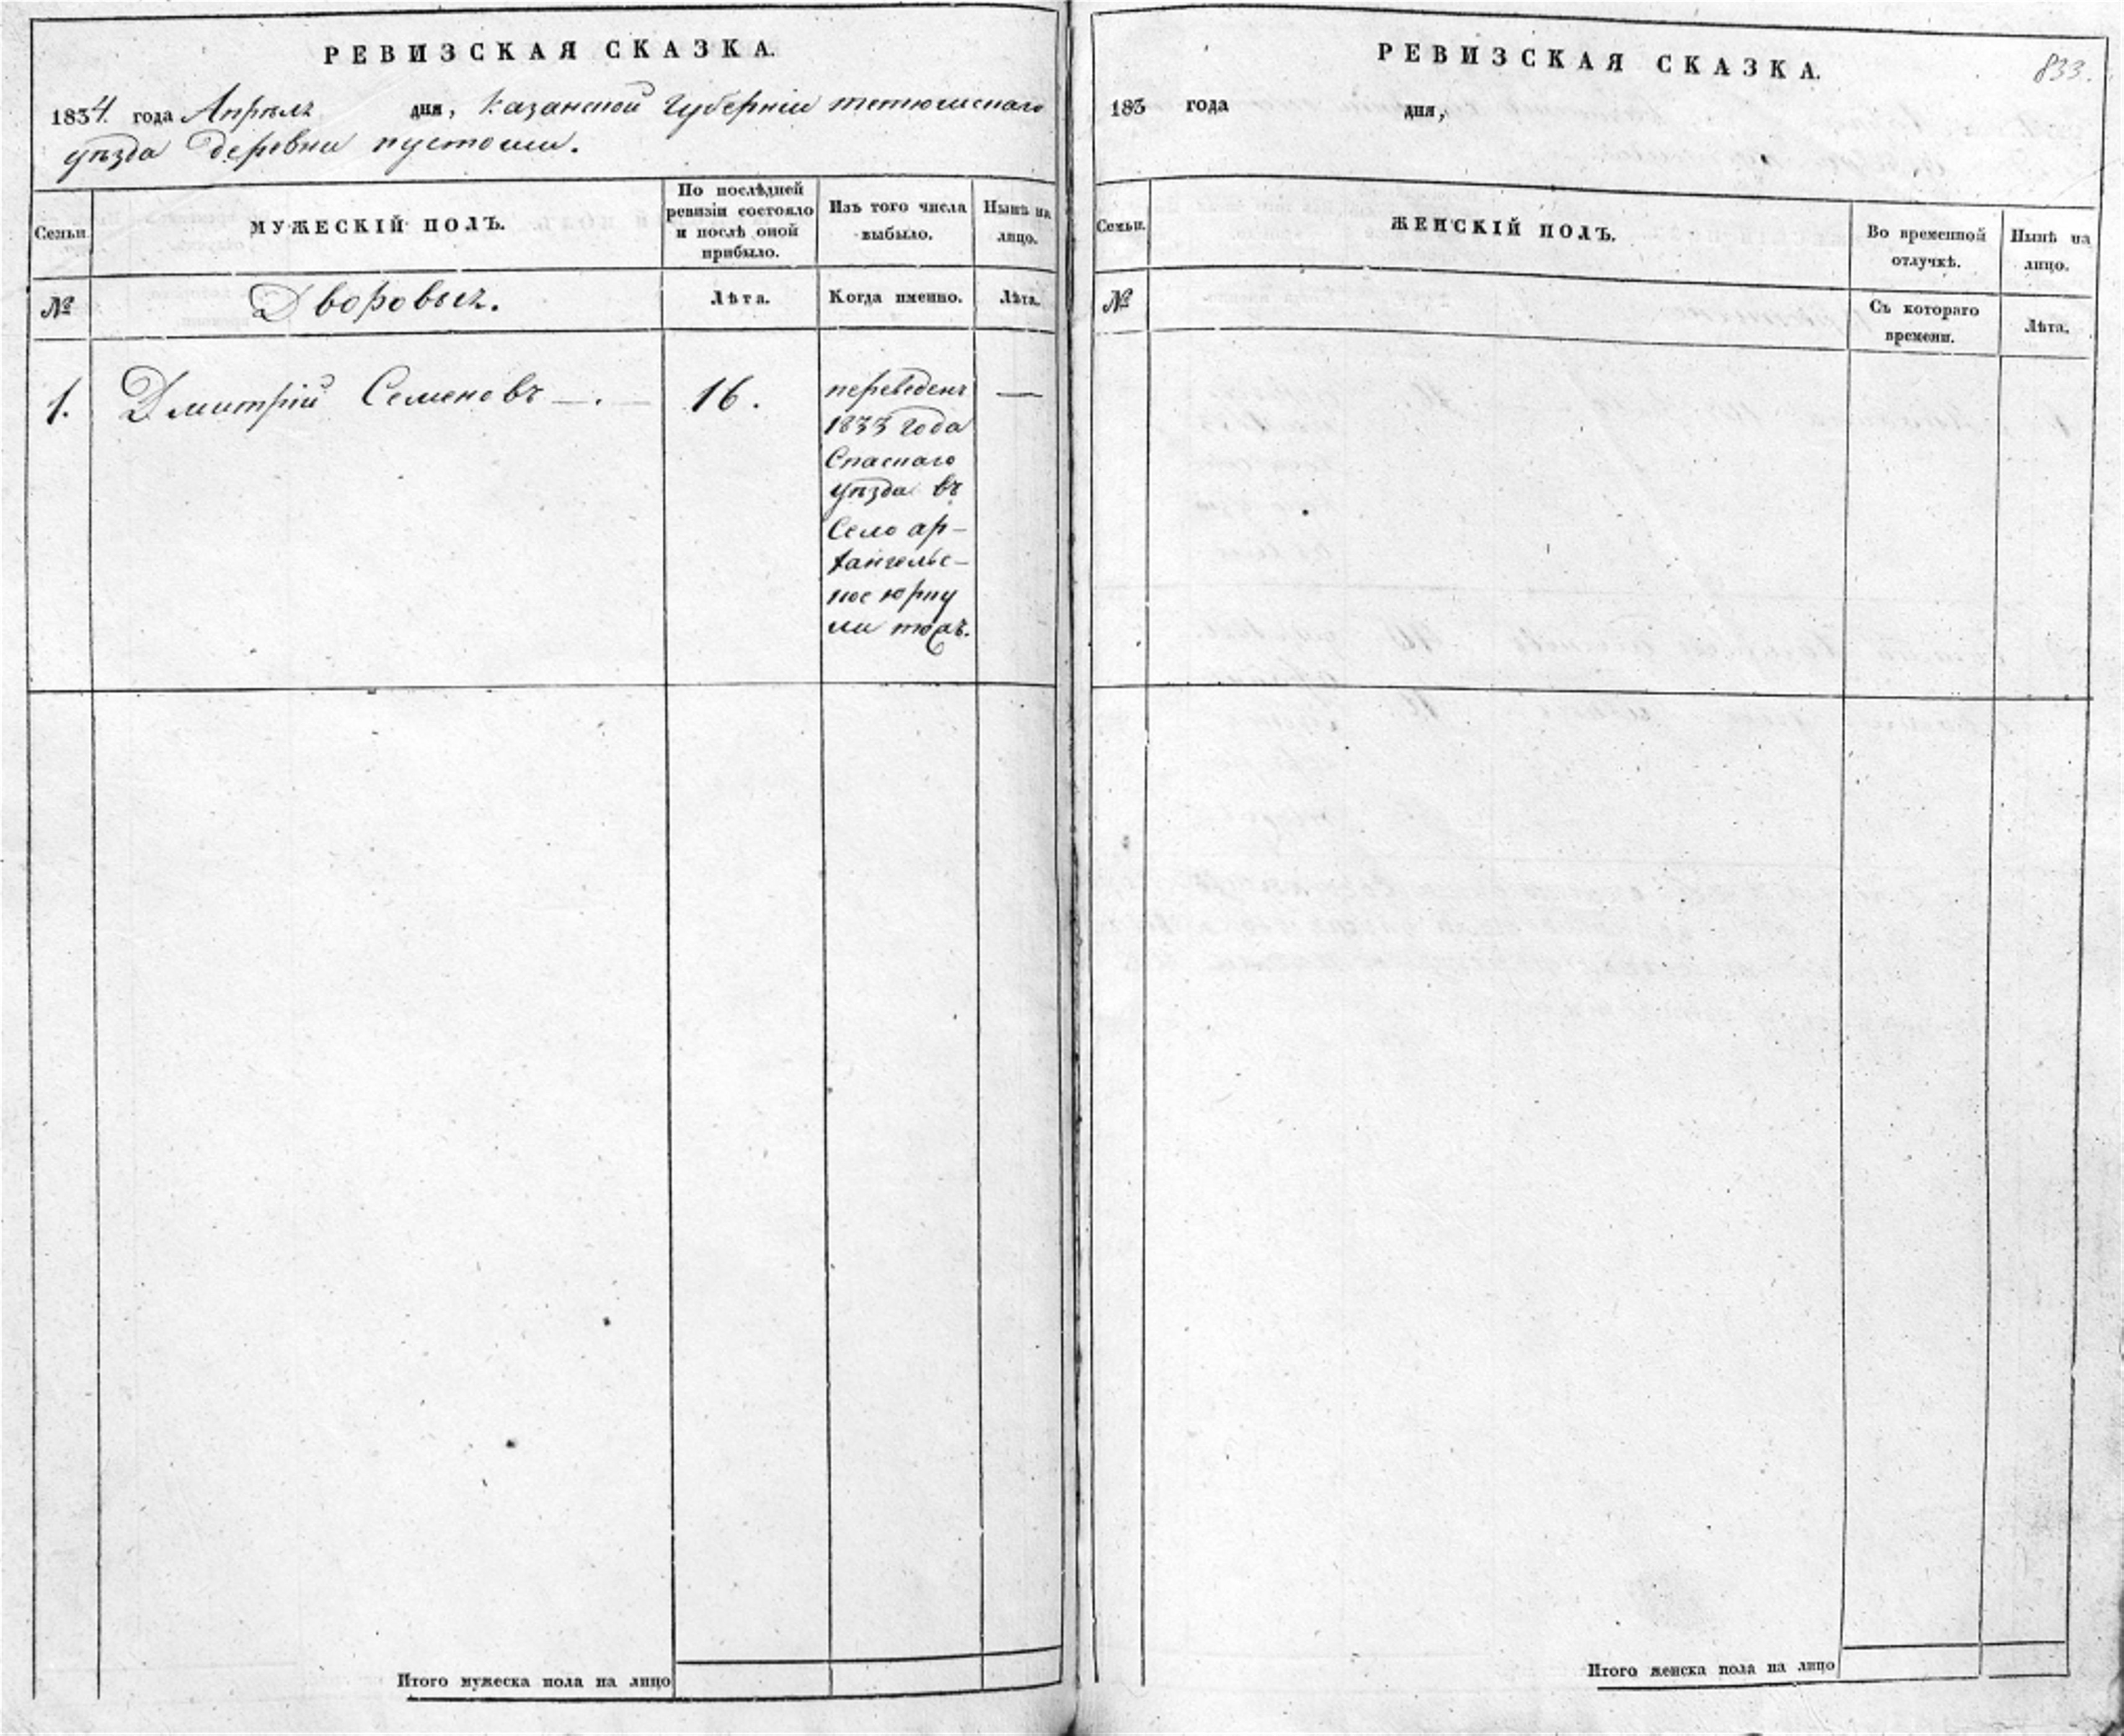 РЕВИЗСКАЯ СКАЗКА.
1834. года Апрѣля дня, Казанской Губерніи тетюшскаго
уѣзда деревни пустоши.
Семьи.
МУЖЕСКІЙ ПОЛЪ.
По послѣдней
ревизіи состояло
и послѣ оной
прибыло.
Изъ того числа
выбыло.
Нынѣ на
лицо.
№
Дворовыхъ.
Лѣта.
Когда именно.
Лѣта.
1. Дмитрій Семеновъ —.— 16. переведенъ —
1833 года
Спаскаго
уѣзда въ
Село ар-
хангельс-
кое юрку
ли тожъ.
Итого мужеска пола на лицо
РЕВИЗСКАЯ СКАЗКА.
833.
183 года дня,
Семьи.
ЖЕНСКІЙ ПОЛЪ.
Во временной
отлучкѣ.
Нынѣ на
лицо.
№
Съ котораго
времени.
Лѣта.
Итого женска пола на лицо